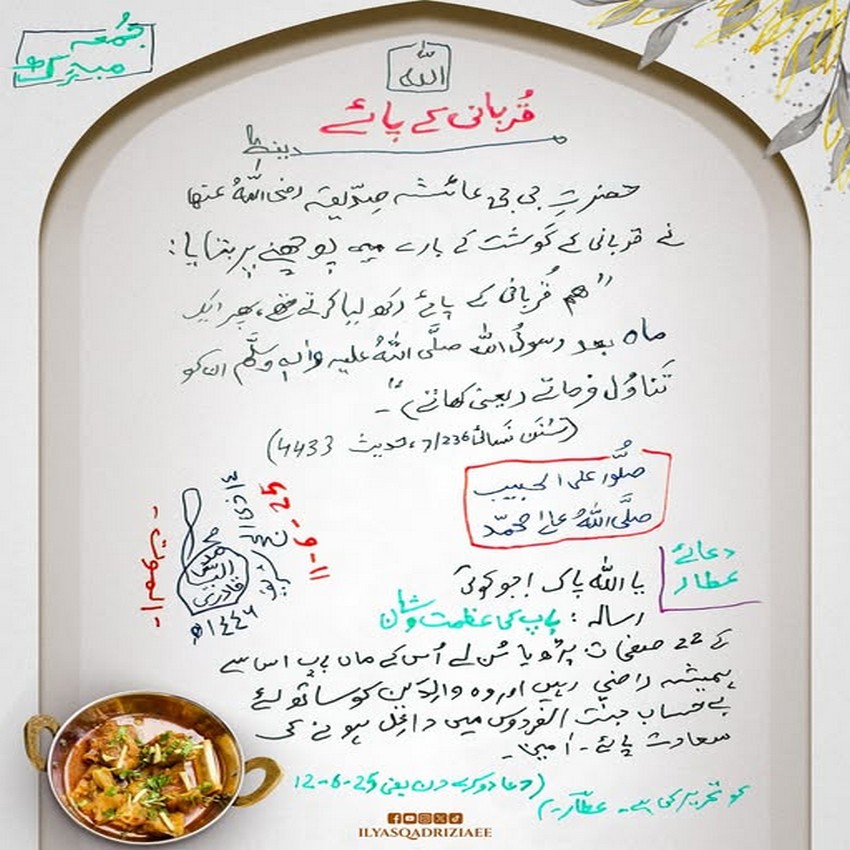 جُمُعہ
مبارک
اللہ
قُربانی کے پائے
حضرتِ بی بی عائشہ صِدّیقہ رضی اللہُ عنها
نے قربانی کے گوشت کے بارے میں پوچھنے پر بتایا:
"ہم قُربانی کے پائے رکھ لیا کرتے تھے، پھر ایک
ماہ بعد رسولُ اللہ صلَّی اللہُ علیہ واٰلہٖ وسلَّم ان کو
تَناوُل فرماتے (یعنی کھاتے)"۔
(سُنَن نَسائی 7/236، حدیث 4433)
صلُّوا علَی الحبیب
صلَّی اللہُ علٰی محمّد
۱۱-۶-۲۵
محمد الیاس
قادری
۱۴۴۶ھ
الموت-
دعائے
عطار
یا اللہ پاک! جو کوئی
رسالہ: باپ کی عظمت و شان
کے 22 صفحات پڑھ یا سُن لے اُس کے ماں باپ اس سے
ہمیشہ راضی رہیں اور وہ والِدَین کو ساتھ لئے
بے حساب جنّت الفردوس میں داخِل ہونے کی
سعادت پائے۔ اٰمین۔
(دعا دوسرے دن یعنی 12-6-25
کو تحریر کی ہے۔ عطّار۔)
ILYASQADRIZIAEE